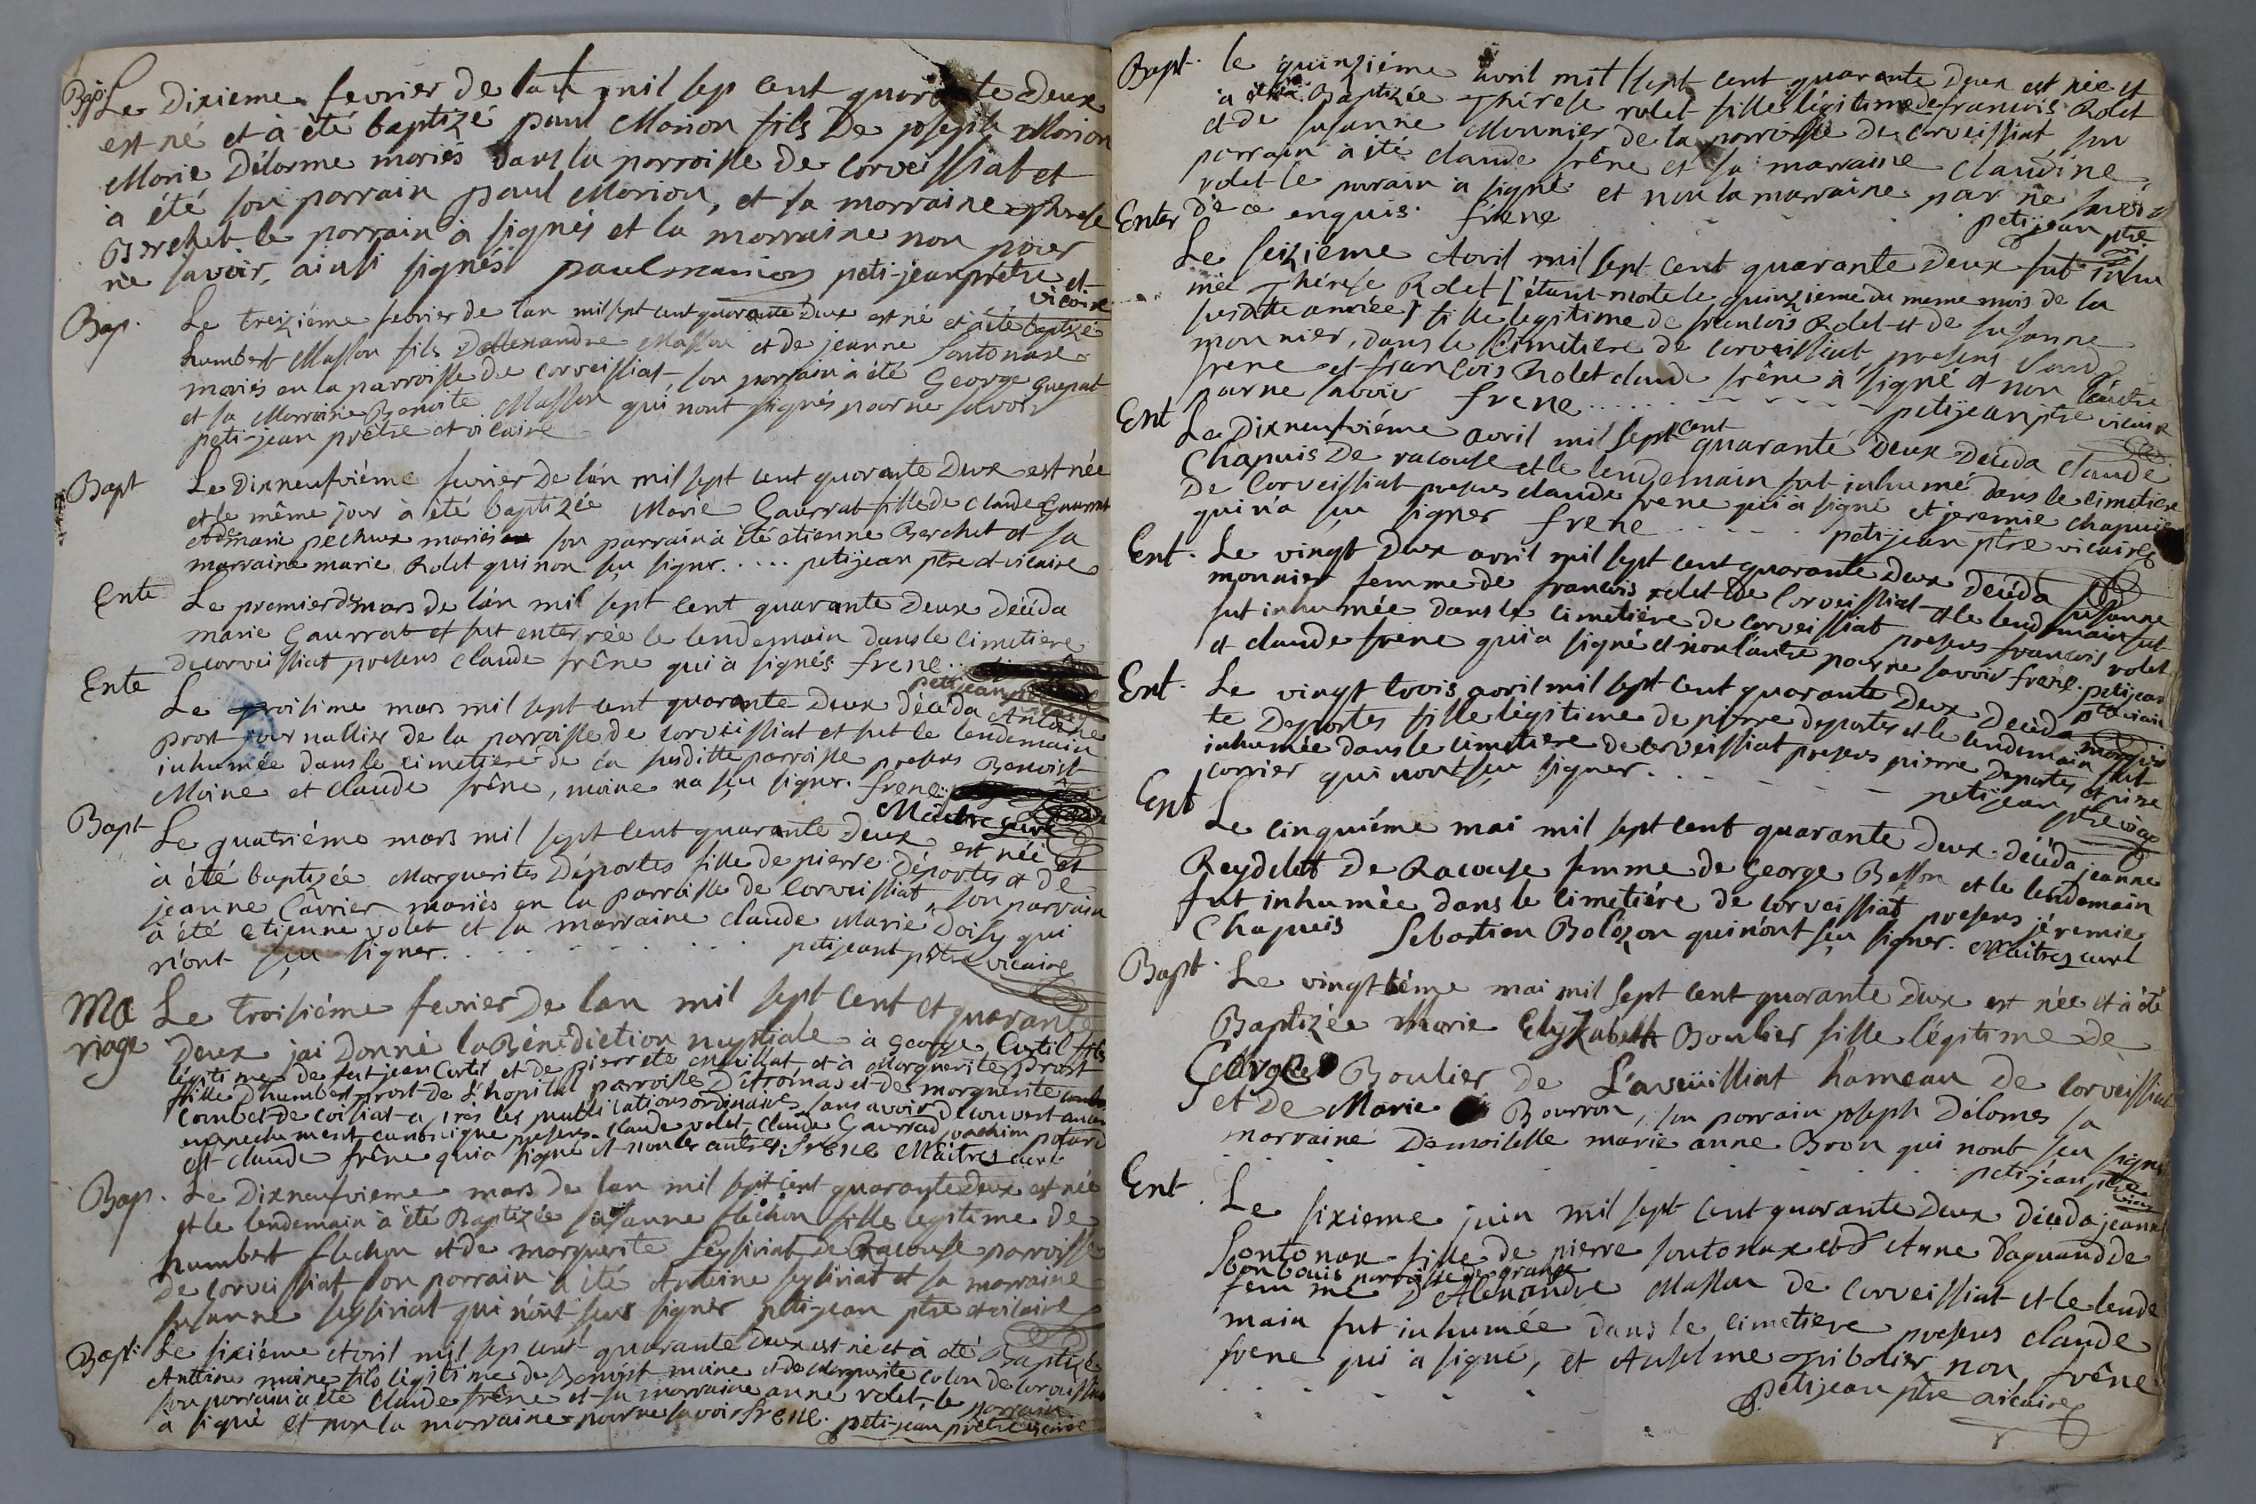 Bap. Le Dixieme fevrier de lan mil sep cent quarante Deux
est né et à été baptizé paul Morion fils De joseph Morion
Marie Délorme mariés dans la parroisse de Corveissiat et
à été son parrain paul Morion, et sa marraine
Berchet le parrain à signés et la marraine non pour
ne savoir, ainsi signés paul marion peti-jean prêtre et
vicaire
Bap. Le treizième fevrier de lan mil sept cent quarante deux est né et à été baptizé
humbert Masson fils Dallexandre Masson et de jeanne Sontonax
mariés en la parroisse de Corveissiat, son parrain à été George
et sa Marraine Benoite Masson qui n'ont signés pour ne savoir
peti-jean prêtre et vicaire
Bapt Le Dixneufvième fevrier De lan mil sept cent quarante Deux est née
et le même jour à été baptizée Marie Gaurrat fille de Claude Gaurrat
et de marie pecheux mariés son parrain à été etienne Berchet et sa
marraine marie Rolet qui non sçu signer. .... petijean ptre et vicaire
Ente Le premier de mars de lan mil sept cent quarante Deux Décéda
marie Gaurrat et fut enterrée le lendemain dans le cimetiere
de corveissiat presens Claude frêne qui à signés frene
petijean
Ente Le troisime mars mil sept cent quarante Deux Décéda Antoine
prost journallier de la parroisse de corveissiat et fut le lendemain
inhumée dans le cimetiere de la susditte parroisse presens Benoist
Moine et Claude frêne, moine na sçu signer. frene
Maitre curé
Bapt Le quatriéme mars mil sept cent quarante Deux est née et
à été baptizée Marguerites Déportes fille de pierre Déportes et de
jeanne Cârrier mariés en la parroisse de Corveissiat, son parrain
à été etienne volet et sa marraine Claude Marie Doisy qui
n'ont sçu signer. petijeant prêtre vicaire
Ma Le troisiéme fevrier De lan mil sept cent et quarante
riage Deux jai Donné la Bénédiction nuptiale à George Cutil fils
légitime de feu jean Cutil et de pierrete Maillat, et à Marguerite prost
fille Dhumbert prost de l'hopital parroisse Détromas et de marguerite
Combet de coissiat après les publications ordinaires sans avoir découvert aucun
empechement canonique presens claude volet, claude Gaurrad joachim
et claude frêne qui à signé et non les autres. frene Maitres curé
Bap. Le Dixneufvieme mars de lan mil sept cent quarante Deux est née
et le lendemain à été Baptizée susanne flêchon fille legitime de
humbert flechon et de marguerite seyssiriat de Racouse parroisse
De corveissiat son parrain à été Antoine seyssiriat et sa marraine
susanne seyssiriat qui n'ont sçus signer peti-jean ptre et vicaire
Bapt. Le sixiéme Avril mil sep cent quarante Deux est né et à été Baptizé
Antoine moine fils légitime de Benoist moine et de Marguerite Colon de Corveissiat
son parrain à été Claude frêne et sa marraine anne volet, le parrain
à signé et non la marraine pour ne savoir frene. peti-jean prêtre vicaire
Bapt. le quinziéme avril mil sept cent quarante Deux est née et
à été Baptizée Thérese rolet fille légitime de francois Rolet
et de susanne Mounier de la parroisse de corveissiat, son
parrain à été claude frêne et sa marraine Claudine
rolet le parrain à signé et non la marraine par ne savoir
de ce enquis. frene petijean ptre
Enter Le seiziéme Avril mil sept cent quarante Deux fut inhu
mée Thérése Rolet [étant morte le quinzieme du meme mois de la
susditte année] fille legitime de francois Rolet et de susanne
monnier, dans le Cimetiere de corveissiat presens Claude
frene et francois Rolet claude frêne à signé et non l'autre
par ne savoir frene petijean ptre vicaire
Ent Le Dixneufviéme avril mil sept cent quarante Deux Décéda Claude
Chapuis De racouse et le lendemain fut inhumé dans le cimetiere
De Corveissiat presens claude frene qui à signé et jeremie chapuis
qui n'a sçu signer frene peti-jean ptre vicaire
Ent. Le vingt Deux avril mil sept cent quarante Deux Décéda susanne
monnier femme de francois rolet de Corveissiat et le lendemain fut
fut inhumée dans le cimetiére de corveissiat presens francois rolet
et claude frene qui à signé et non l'autre pour ne savoir frene. petijean
ptre vicaire
Ent. Le vingt trois avril mil sept cent quarante Deux Décéda margueri
te Deportes fille légitime de pierre deportes et le lendemain fut
inhumée dans le cimetiere de corveissiat presens pierre Deportes et
corrier qui nont sçu signer. petijean ptre vicaire
Ent Le cinquiéme mai mil sept cent quarante Deux Décéda jeanne
Reydelet De Racouse femme de George Besson et le lendemain
fut inhumée dans le cimetiére de corveissiat presens jéremie
Chapuis Sebastien Bolozon qui n'ont sçu signer. Maitres curé
Bapt. Le vingtiéme mai mil sept cent quarante Deux est née et à été
Baptizée Marie Elyzabeth Boulier fille légitime de
George Boulier de L'aveüilliat hameau de Corveissiat
et De Marie Bourron, son parrain joseph Délomes sa
marraine Demoiselle marie anne Bron qui nont sçu signé
petijean ptre vicaire
Ent Le sixieme juin mil sept cent quarante Deux décéda jeanne
Sontonax fille de pierre sontonax et d'Anne Daguand de
parroisse de grange
femme D'Alexandre Masson de Corveissiat et le lende
main fut inhumée dans le cimetiere presens claude
frene qui à signé, et Anselme Tibolier non, frêne
petijean ptre vicaire